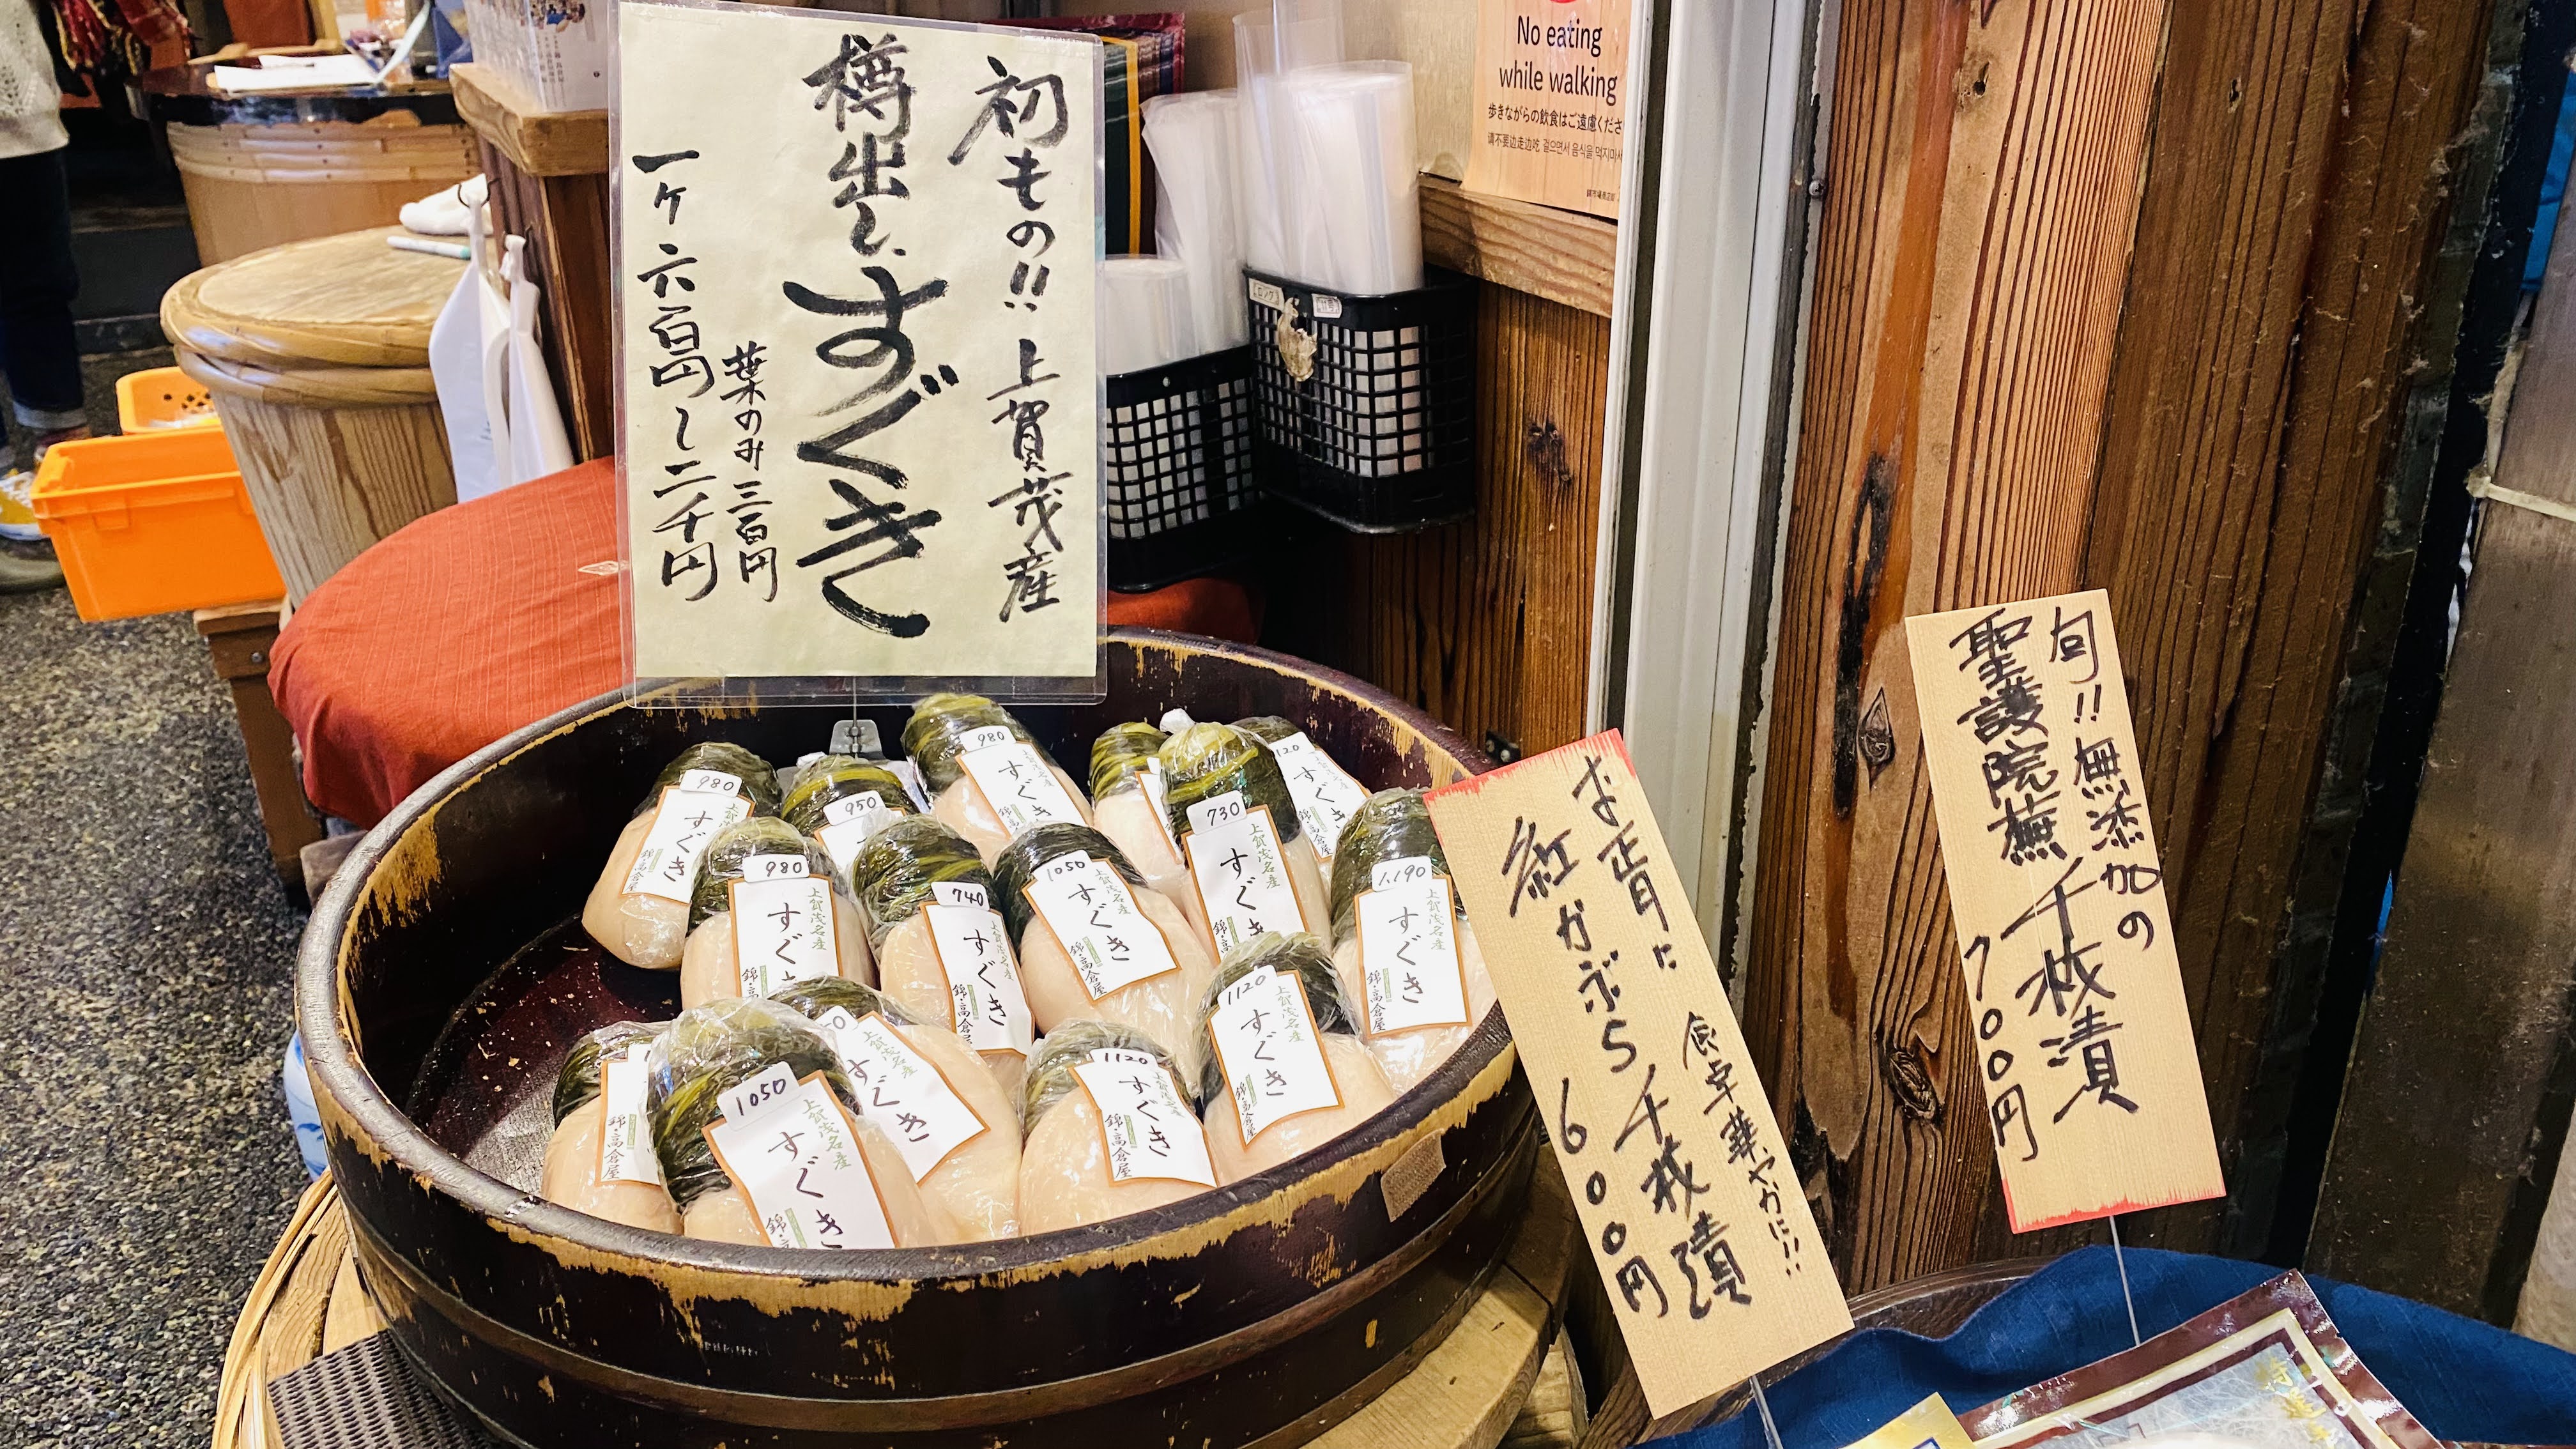 初もの!! 上賀茂産
樽出し、すぐき
葉のみ三百円
一ケ六百円し二千円
No eating
while walking
歩きながらの飲食はご遠慮くださ
请不要边走边吃 걸으면서 음식을 먹지마시
錦市場商店街
旬!! 無添加の
聖護院蕪千枚漬
700円
お正月に
食卓華やかに!!
紅かぶら千枚漬
600円
980
すぐき
錦・高倉屋
950
980
上賀茂名産
すぐき
錦・高倉屋
980
すぐき
錦
730
上賀茂名産
すぐき
錦・高倉
120
すぐき
740
上賀茂名産
すぐき
錦・高倉屋
1050
上賀茂名産
すぐき
錦・高倉屋
1,190
上賀茂名産
すぐき
錦・高倉屋
1120
上賀茂名産
すぐき
錦・高倉屋
1120
上賀茂名産
すぐき
錦・高倉屋
0
上賀茂名産
すぐき
錦・高倉屋
1050
上賀茂名産
すぐき
錦・高